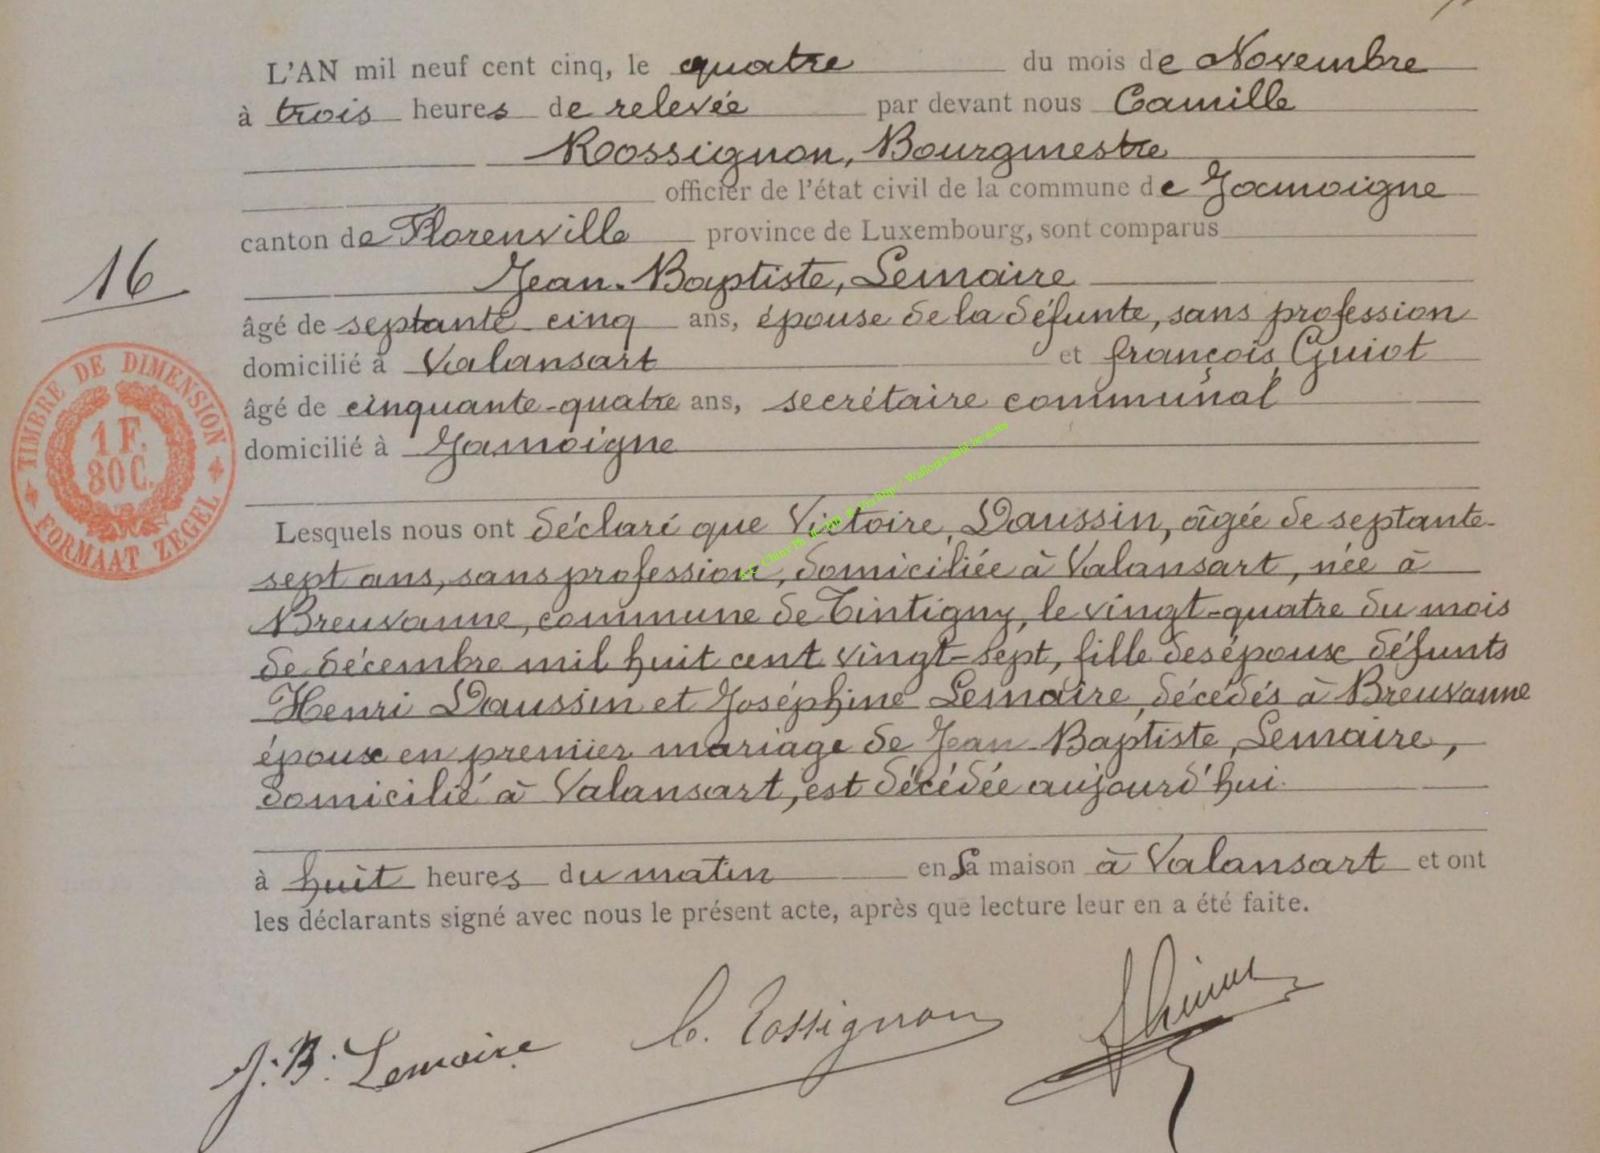 L'AN mil neuf cent cinq, le quatre du mois de Novembre
à trois heures de relevée par devant nous Camille
Rossignon, Bourgmestre
officier de l'état civil de la commune de Jamoigne
canton de Florenville province de Luxembourg, sont comparus
16
Jean-Baptiste, Lemaire
âgé de septante cinq ans, épouse de la défunte, sans profession
domicilié à Valansart et françois, Guiot
âgé de cinquante-quatre ans, secrétaire communal
domicilié à Jamoigne
TIMBRE DE DIMENSION
1 F.
80 C.
FORMAAT ZEGEL
Lesquels nous ont déclaré que Victoire, Daussin, âgée de septante-
sept ans, sans profession, domiciliée à Valansart, née à
Breuvanne, commune de Tintigny, le vingt-quatre du mois
de décembre mil huit cent vingt-sept, fille des époux défunts
Henri Daussin et Joséphine Lemaire, décédés à Breuvanne
époux en premier mariage de Jean-Baptiste, Lemaire,
domicilié à Valansart, est décédée aujourd'hui
à huit heures du matin en sa maison à Valansart et ont
les déclarants signé avec nous le présent acte, après que lecture leur en a été faite.
J.B. Lemaire C. Rossignon